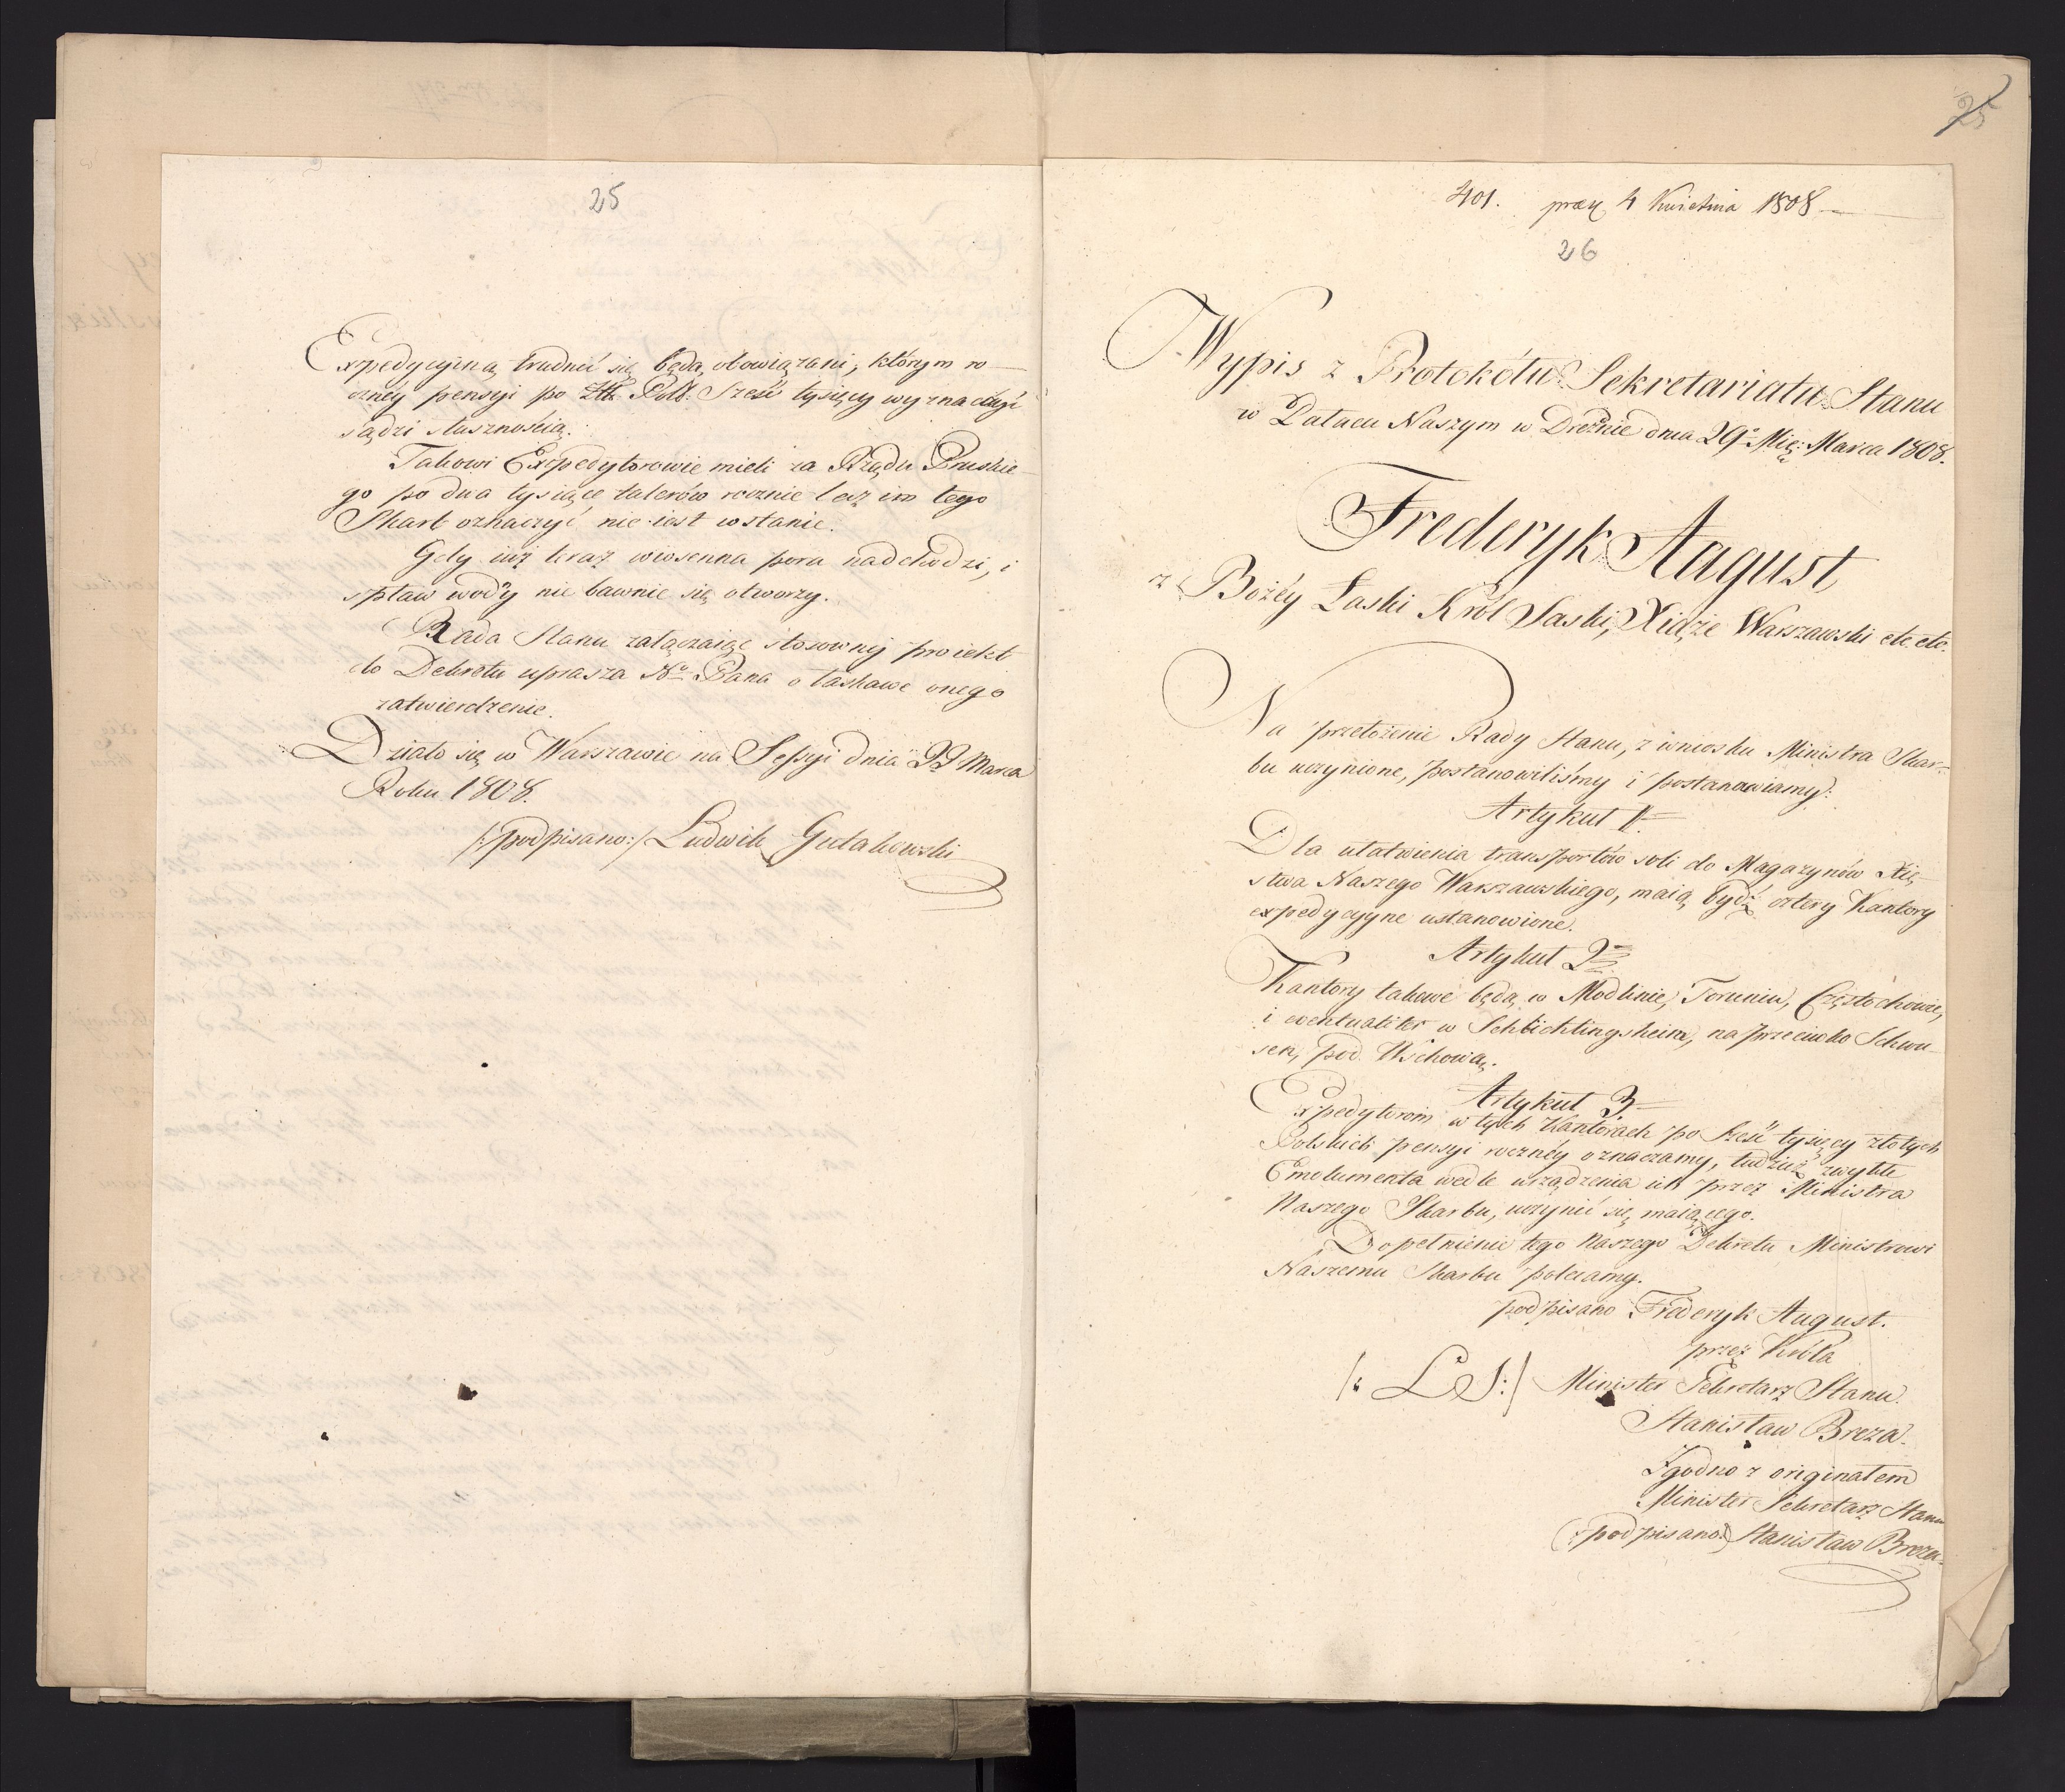 25
Expedycyiną trudnić się będą obowiązani, którym ro¬
cznéy pensyi po Złł. Pols: Sześć tysięcy wyznaczyć
sądzi słusznością.
Takowi Expedytorowie mieli za Rządu Pruskie¬
go po dwa tysiące talerów rocznie lecz im tego
Skarb oznaczyć nie iest wstanie.
Gdy iuż teraz wiosenna pora nadchodzi, i
spław wody nie bawnie się otworzy.
Rada Stanu załączaiąc stosowny proiekt
do Dekretu uprasza No Pana o łaskawe onego
zatwierdzenie.
Działo się w Warszawie na Sessyi dnia 22 Marca
Roku 1808.
/:podpisano:/ Ludwik Gutakowski
25
401. praez 4 Kwietnia 1808
26
Wypis z Protokółu Sekretariatu Stanu
w Pałacu Naszym w Dreznie dnia 29o Mię: Marca 1808.
Frederyk August
z Bożéy Łaski Król Saski, Xiąże Warszawski etc. etc.
Na przełożenie Rady Stanu, z wniosku Ministra Skar¬
bu uczynione, postanowiliśmy i postanawiamy:
Artykuł 1.
Dla ułatwienia transportów soli do Magazynów Xię¬
stwa Naszego Warszawskiego, maią bydź cztery Kantory
expedycyyne ustanowione.
Artykuł 2
Kantory takowe będą w Modlinie, Toruniu, Częstochowie,
i eventualiter w Schlichtingsheim, naprzeciwko Schwu¬
sen, pod Wschową.
Artykuł 3.
Expedytorom w tych Kantorach po sześć tysięcy złotych
Polskich pensyi rocznéy oznaczamy, tudzież zwykłe
Emolumenta wedle urządzenia ich przez Ministra
Naszego Skarbu, uczynić się maiącego.
Dopełnienie tego Naszego Dekretu Ministrowi
Naszemu Skarbu polecamy.
podpisano Frederyk August.
przez Króla
/: L S :/ Minister Sekretarz Stanu.
Stanisław Breza.
Zgodno z originałem
Minister Sekretarz Stanu
(:podpisano:) Stanisław Breza.